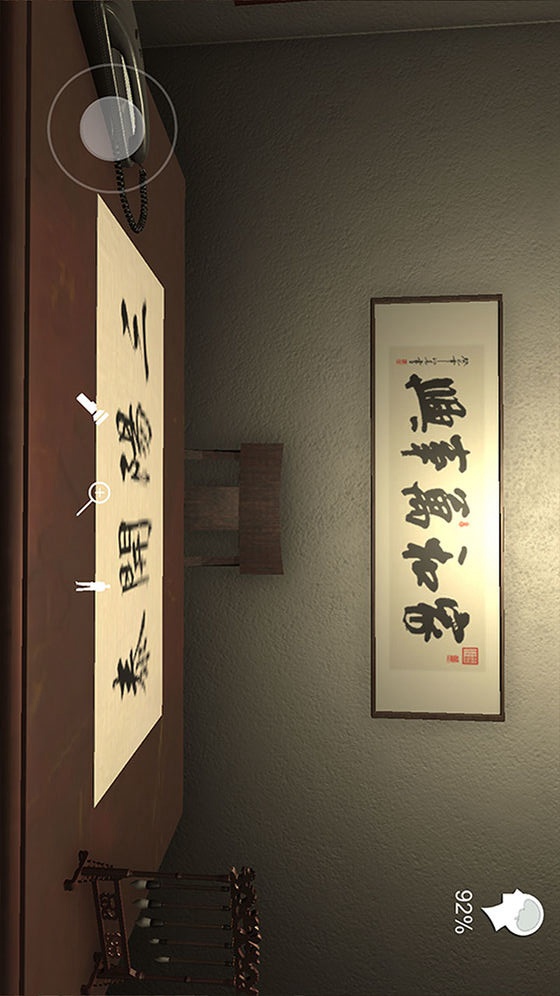 家和萬事興
三陽開泰
92%